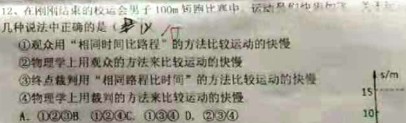 12、在刚刚结束的校运会男子100m短跑比赛中，运动员们快如
几种说法中正确的是（
①观众用“相同时间比路程”的方法比较运动的快慢
②物理学上用观众的方法来比较运动的快慢
③终点裁判用“相同路程比时间”的方法比较运动的快慢
④物理学上用裁判的方法来比较运动的快慢
A. ①②③B. ①②④C. ①③④ D. ②③④
s/m
15
10